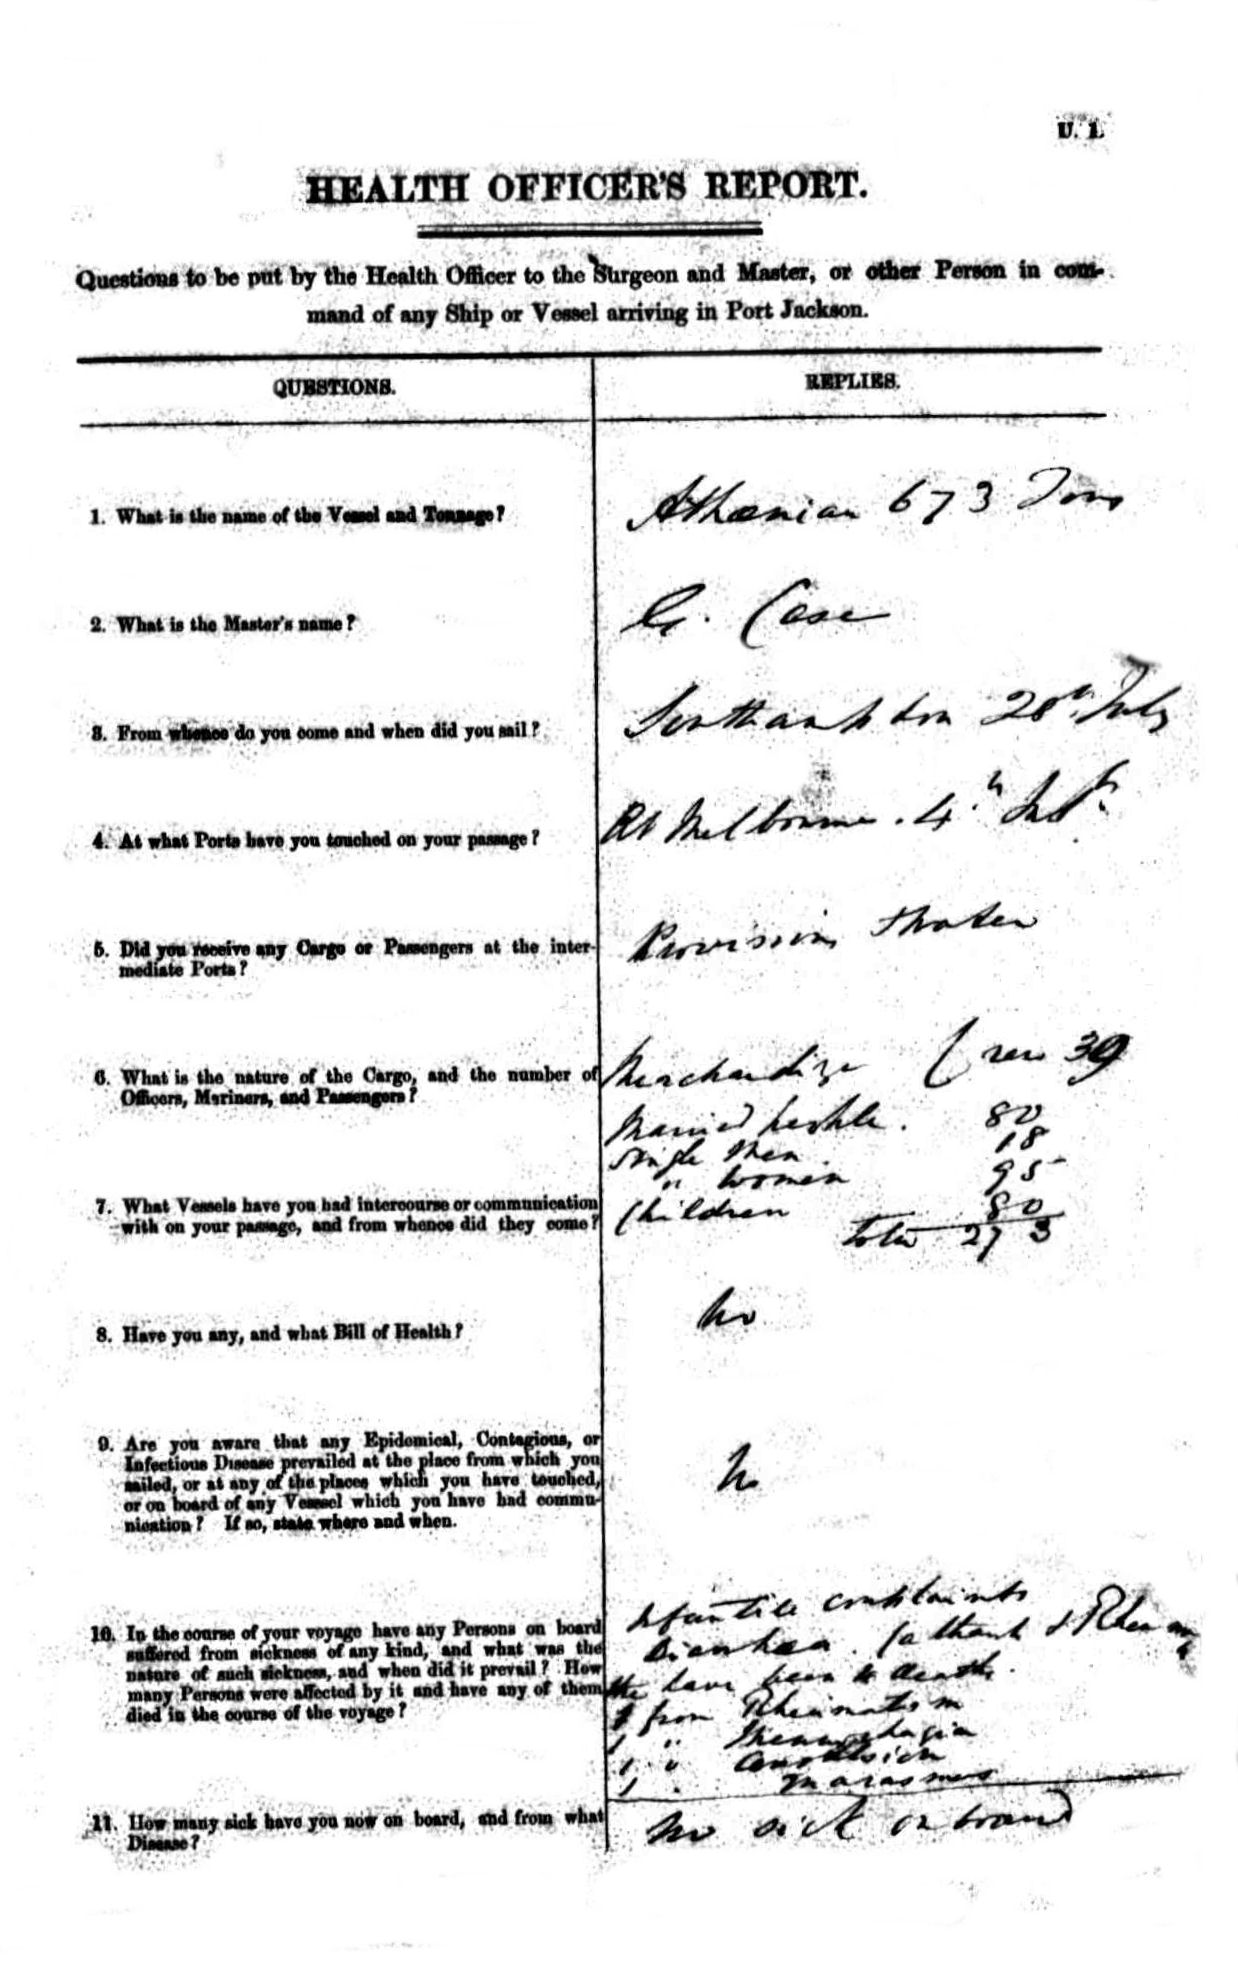 U. 1.
HEALTH OFFICER'S REPORT.
Questions to be put by the Health Officer to the Surgeon and Master, or other Person in com-
mand of any Ship or Vessel arriving in Port Jackson.
QUESTIONS.
REPLIES.
1. What is the name of the Vessel and Tonnage?
Athenian 673 Tons
2. What is the Master's name?
G. Case
3. From whence do you come and when did you sail?
Southampton 28th July
4. At what Ports have you touched on your passage?
At Melbourne. 4th Inst
5. Did you receive any Cargo or Passengers at the inter-
mediate Ports?
Provisions & Water
6. What is the nature of the Cargo, and the number of
Officers, Mariners, and Passengers?
Merchandize Crew 39
Married people. 80
Single Men 18
" Women 95
Children 80
Total 273
7. What Vessels have you had intercourse or communication
with on your passage, and from whence did they come?
8. Have you any, and what Bill of Health?
No
9. Are you aware that any Epidemical, Contagious, or
Infectious Disease prevailed at the place from which you
sailed, or at any of the places which you have touched,
or on board of any Vessel which you have had commu-
nication? If so, state where and when.
No
10. In the course of your voyage have any Persons on board
suffered from sickness of any kind, and what was the
nature of such sickness, and when did it prevail? How
many Persons were affected by it and have any of them
died in the course of the voyage?
Infantile complaints
Diarrhea
have been deaths.
1 from Rheumatism
1 "
1 "
1 " Marasmus
11. How many sick have you now on board, and from what
Disease?
No sick on board